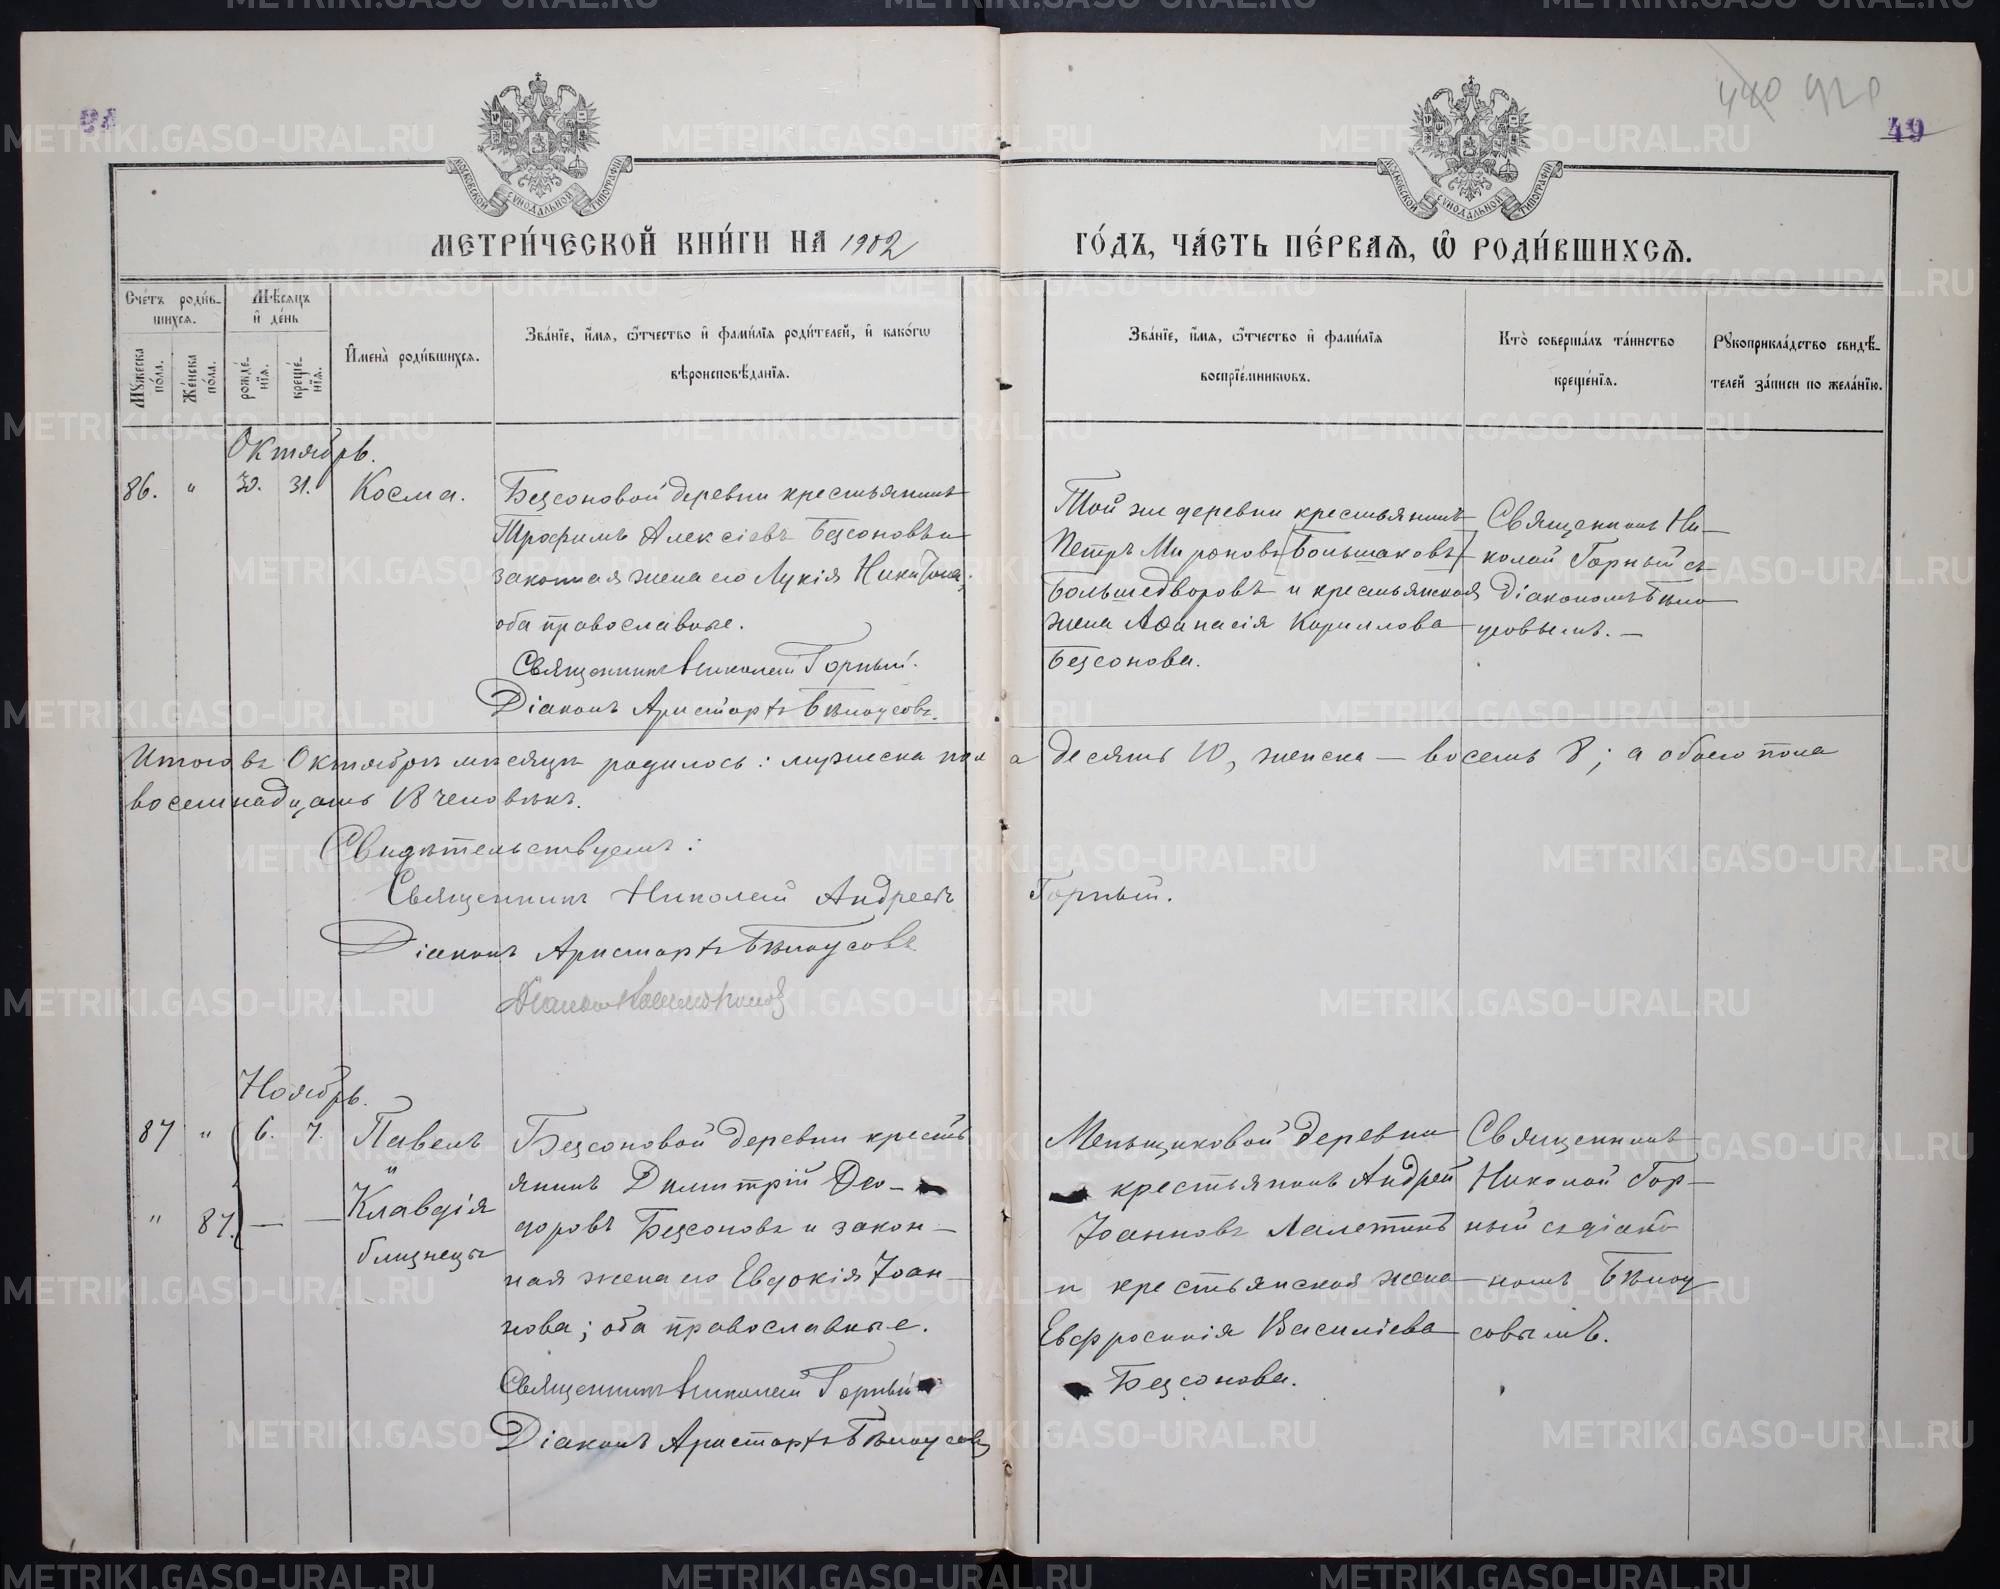 49
МЕТРИ́ЧЕСКОЙ КНИ́ГИ НА 1902
ГО́ДЪ, ЧА́СТЬ ПЕ́РВАѦ, Ѿ РОДИ́ВШИХСѦ.
МОСКОВСКОЙ СѴНОДАЛЬНОЙ ТИПОГРАФІИ
МОСКОВСКОЙ СѴНОДАЛЬНОЙ ТИПОГРАФІИ
Сче́тъ роди́в-
шихсѧ.
Мꙋжеска по́ла.
Же́нска по́ла.
Мѣ́сѧцъ
и҆ де́нь
рожде́-
нїѧ.
креще́-
нїѧ.
И҆мена̀ роди́вшихсѧ.
Зва́нїе, и҆́мѧ, ѻ҆́тчество и҆ фами́лїѧ роди́телей, и҆ како́гѡ
вѣроисповѣ́данїѧ.
Зва́нїе, и҆́мѧ, ѻ҆́тчество и҆ фами́лїѧ
воспрїе́мникѡвъ.
Кто̀ соверша́лъ та́инство
креще́нїѧ.
Рꙋкоприкла́дство свидѣ́-
телей за́писи по жела́нїю.
Октябрь.
86. " 30. 31. Косма.
Безсоновой деревни крестьянинъ
Трофимъ Алексіевъ Безсоновъ и
законная жена его Лукія Никитина,
оба православные.
Священникъ Николай Горный.
Діаконъ Аристархъ Бѣлоусовъ.
Той же деревни крестьянинъ
Петръ Мироновъ (Большаковъ)
Большедворовъ и крестьянская
жена Аѳанасія Кориллова
Безсонова.
Священникъ Ни-
колай Горный съ
діакономъ Бѣло
усовымъ. —
Итого въ Октябрѣ мѣсяцѣ родилось: мужеска пола десять 10, женска — восемь 8; а обоего пола
восемнадцать 18 человѣкъ.
Свидѣтельствуемъ:
Священникъ Николай Андреевъ Горный.
Діаконъ Аристархъ Бѣлоусовъ
Ноябрь.
87 " 6. 7. Павелъ
"
" 87. — — Клавдія
близнецы
Безсоновой деревни кресть
янинъ Димитрій Ѳео-
доровъ Безсоновъ и закон-
ная жена его Евдокія Іоан-
нова; оба православные.
Священникъ Николай Горный
Діаконъ Аристархъ Бѣлоусовъ
Меньщиковой деревни
крестьянинъ Андрей
Іоанновъ Лалетинъ
и крестьянская жена
Евфросинія Василіева
Безсонова.
Священникъ
Николай Гор-
ный съ діако
номъ Бѣлоу
совымъ.
METRIKI.GASO-URAL.RU